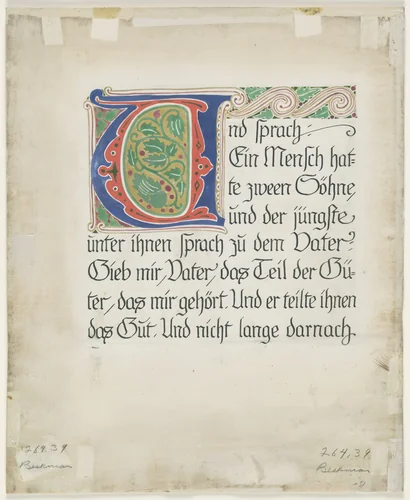 Und sprach:
Ein Mensch hat⸗
te zween Söhne,
und der jüngste
unter ihnen sprach zu dem Vater:
Gieb mir, Vater, das Teil der Gü⸗
ter, das mir gehört. Und er teilte ihnen
das Gut. Und nicht lange darnach
264.39
Beekman
264.39
Beekman